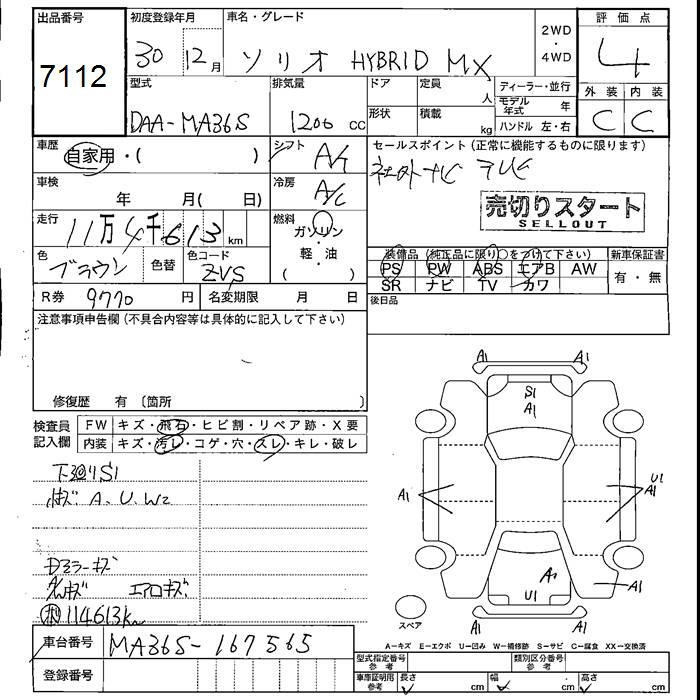 出品番号
7112
初度登録年月
30 12月
車名・グレード
ソリオ HYBRID MX
2WD
・
4WD
評価点
4
外装 内装
C C
型式
DAA-MA36S
排気量
1200 cc
ドア
形状
定員
人
積載
kg
ディーラー・並行
モデル年式 年
ハンドル 左・右
車歴
自家用・( )
シフト
A/T
セールスポイント(正常に機能するものに限ります)
ナビ テレビ
売切りスタート
SELLOUT
車検
年 月( 日)
冷房
A/C
走行
11万4千613km
燃料
ガソリン・
軽・油
( )
色
ブラウン
色替
色コード
ZVS
装備品(純正品に限り○をつけて下さい)
PS PW ABS エアB AW
SR ナビ TV カワ
新車保証書
有・無
R券 9770 円
名変期限 月 日
後日品
注意事項申告欄(不具合内容等は具体的に記入して下さい)
修復歴 有 〔箇所
検査員
記入欄
FW キズ・飛石・ヒビ割・リペア跡・X要
内装 キズ・汚レ・コゲ・穴・スレ・キレ・破レ
下廻りS1
A.U.W2
Dミラーキズ
エアロキズ
114613km
A1 A1
S1
A1
A1
U1
A1
A1
U1
A1
A1 A1
スペア
A-キズ E-エクボ U-凹み W-補修跡 S-サビ C-腐食 XX-交換済
車台番号
MA36S-167565
登録番号
型式指定番号
参考
類別区分番号
参考
車庫証明用
参考
長さ cm
幅 cm
高さ cm